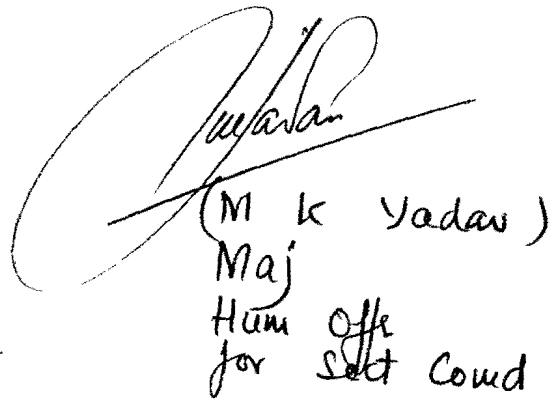 (M K Yadav)
Maj
Hum Offr
for Sect Comd